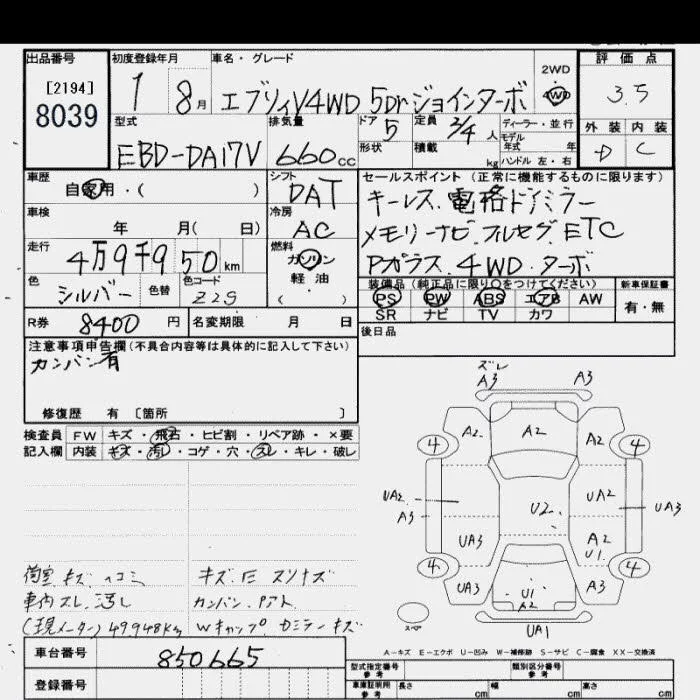 出品番号
[2194]
8039
初度登録年月
1 8月
車名・グレード
エブリィV4WD 5Dr ジョインターボ
2WD
4WD
評価点
3.5
型式
EBD-DA17V
排気量
660cc
ドア
5
形状
定員
2/4人
積載
kg
ディーラー・並行
モデル年式 年
ハンドル 左・右
外装 内装
D C
車歴
自家用・( )
シフト
DAT
車検
年 月( 日)
冷房
AC
走行
4万9千950km
燃料
ガソリン
軽油
( )
色
シルバー
色替
色コード
Z2S
R券
8400円
名変期限 月 日
セールスポイント(正常に機能するものに限ります)
キーレス.電格ドアミラー
メモリーナビ.フルセグ.ETC
Pガラス.4WD.ターボ
装備品(純正品に限り○をつけてください)
PS PW ABS エアB AW
SR ナビ TV カワ
新車保証書
有・無
後日品
注意事項申告欄(不具合内容等は具体的に記入して下さい)
カンバン有
修復歴 有 〔箇所 〕
検査員記入欄
FW キズ・飛石・ヒビ割・リペア跡・×要
内装 キズ・汚レ・コゲ・穴・スレ・キレ・破レ
荷室キズ.ヘコミ
車内スレ.汚レ
(現メーター)49948Km
カンバン.アト
Wキャップ
車台番号
850665
登録番号
ズレ
A3 A3
A2 A2 A2
4 4
UA2 A3
U2
UA2
UA3
UA3
A2
U1
4 4
UA3
U1
A2
A3
UA1
スペア
A-キズ E-エクボ U-凹み W-補修跡 S-サビ C-腐食 XX-交換済
型式指定番号
参考
類別区分番号
参考
車庫証明用
参考
長さ cm
幅 cm
高さ cm